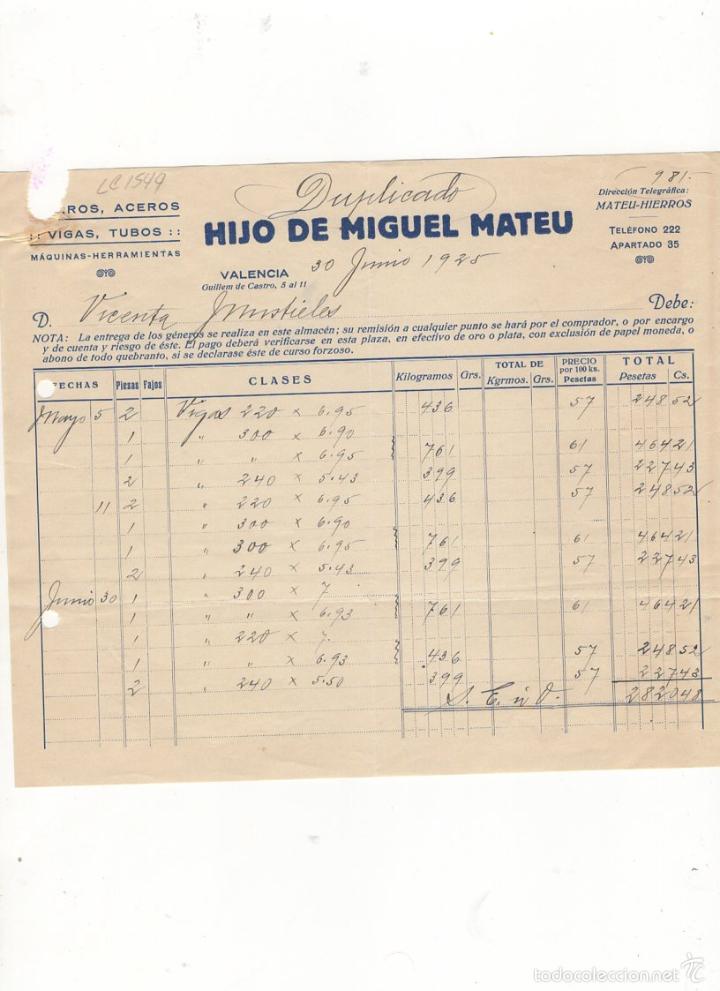 LC1549
981.-
Duplicado
ROS, ACEROS
:: VIGAS, TUBOS ::
MÁQUINAS-HERRAMIENTAS
HIJO DE MIGUEL MATEU
Dirección Telegráfica:
MATEU-HIERROS
TELÉFONO 222
APARTADO 35
VALENCIA 30 Junio 1925
Guillem de Castro, 5 al 11
D. Vicenta Mustieles Debe:
NOTA: La entrega de los géneros se realiza en este almacén; su remisión a cualquier punto se hará por el comprador, o por encargo
y de cuenta y riesgo de éste. El pago deberá verificarse en esta plaza, en efectivo de oro o plata, con exclusión de papel moneda, o
abono de todo quebranto, si se declarase éste de curso forzoso.
FECHAS Piesas Fajos CLASES Kilogramos Grs. TOTAL DE Kgrmos. Grs. PRECIO por 100 ks. Pesetas TOTAL Pesetas Cs.
Mayo 5 2 Vigas 220 x 6.95 436 57 248 52
1 " 300 x 6.90
1 " " x 6.95 761 61 464 21
2 " 240 x 5.43 399 57 227 43
11 2 " 220 x 6.95 436 57 248 52
1 " 300 x 6.90
1 " 300 x 6.95 761 61 464 21
2 " 240 x 5.43 399 57 227 43
Junio 30 1 " 300 x 7
1 " " x 6.93 761 61 464 21
1 " 220 x 7.
1 " " x 6.93 436 57 248 52
2 " 240 x 5.50 399 57 227 43
S. E. ú O. 2820 48
todocoleccion.net